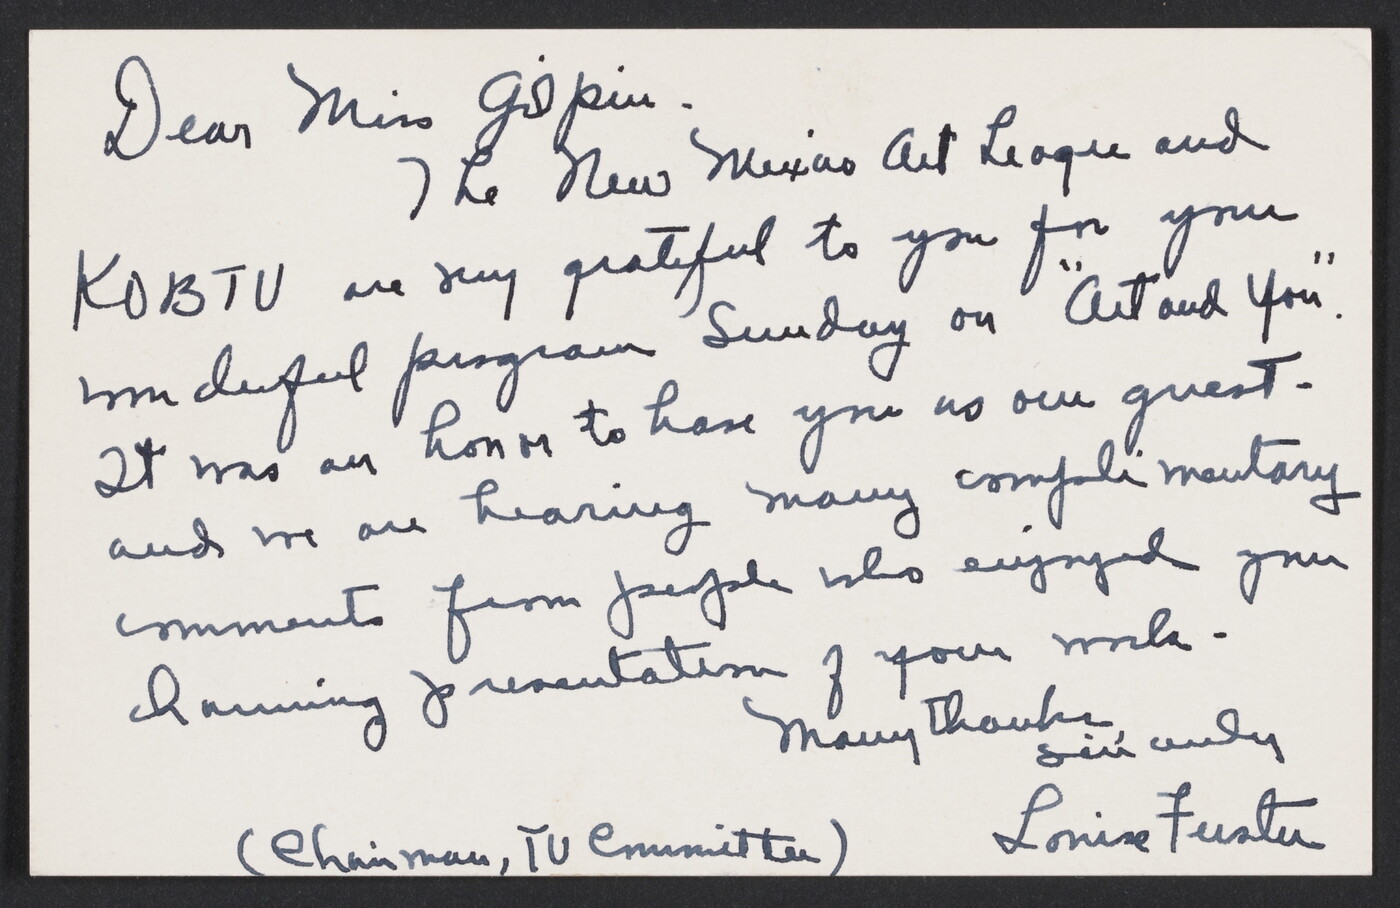 Dear Miss Gilpin.
The New Mexico Art League and
KOBTV are very grateful to you for your
wonderful program Sunday on "Art and You".
It was an honor to have you as our guest -
and we are hearing many complimentary
comments from people who enjoyed your
charming presentation of your work -
Many thanks
sincerely
Louise
(Chairman, TV Committee)